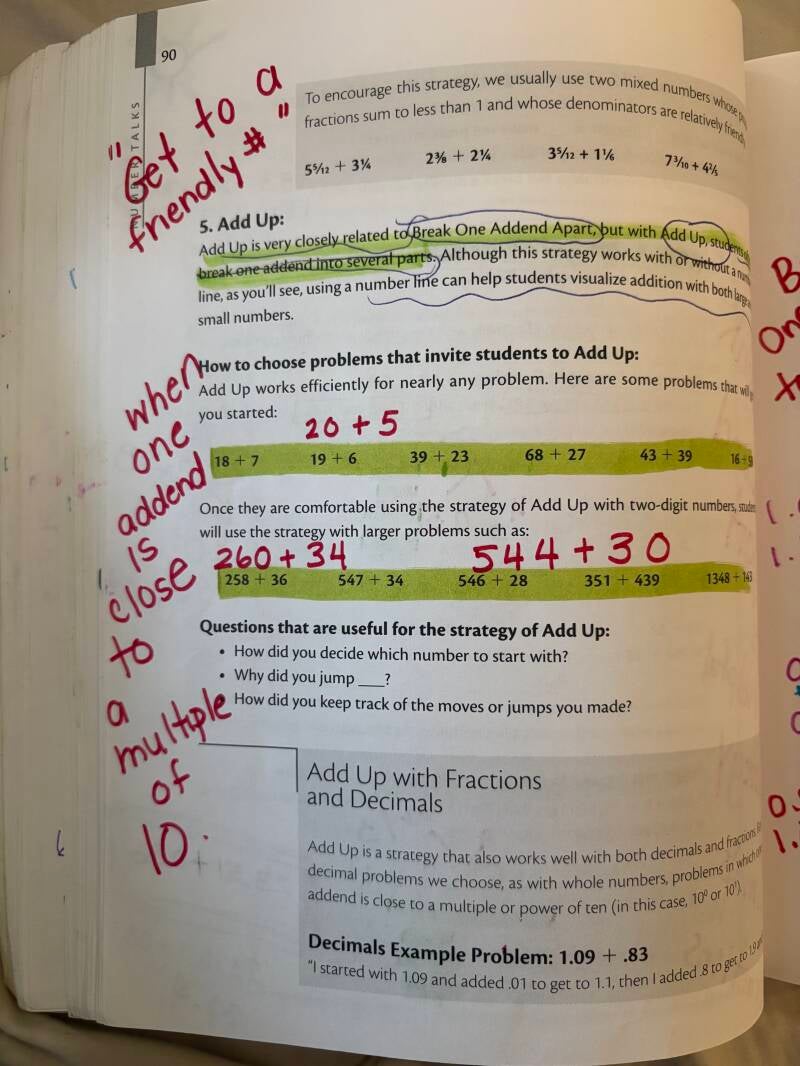 90
NUMBER TALKS
"Get to a
friendly #"
To encourage this strategy, we usually use two mixed numbers whose
fractions sum to less than 1 and whose denominators are relatively friendly
5⁵⁄₁₂ + 3¼ 2⅜ + 2¼ 3⁵⁄₁₂ + 1⅙ 7³⁄₁₀ + 4⅖
5. Add Up:
Add Up is very closely related to Break One Addend Apart, but with Add Up, students
break one addend into several parts. Although this strategy works with or without a
line, as you'll see, using a number line can help students visualize addition with both
small numbers.
when
one
addend
is
close
to
a
multiple
of
10.
How to choose problems that invite students to Add Up:
Add Up works efficiently for nearly any problem. Here are some problems that will
you started:
20 + 5
18 + 7 19 + 6 39 + 23 68 + 27 43 + 39 16 +
Once they are comfortable using the strategy of Add Up with two-digit numbers,
will use the strategy with larger problems such as:
260 + 34 544 + 30
258 + 36 547 + 34 546 + 28 351 + 439 1348 + 143
Questions that are useful for the strategy of Add Up:
• How did you decide which number to start with?
• Why did you jump ___?
How did you keep track of the moves or jumps you made?
Add Up with Fractions
and Decimals
Add Up is a strategy that also works well with both decimals and fractions.
decimal problems we choose, as with whole numbers, problems in which
addend is close to a multiple or power of ten (in this case, 10⁰ or 10¹).
Decimals Example Problem: 1.09 + .83
"I started with 1.09 and added .01 to get to 1.1, then I added .8 to get to 1.9